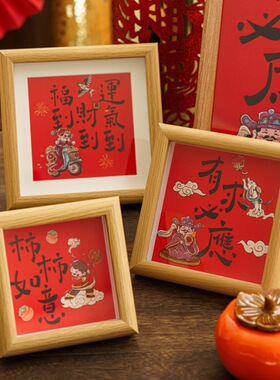 福到
財到
運氣到
必
有求
必應
柿柿
如意